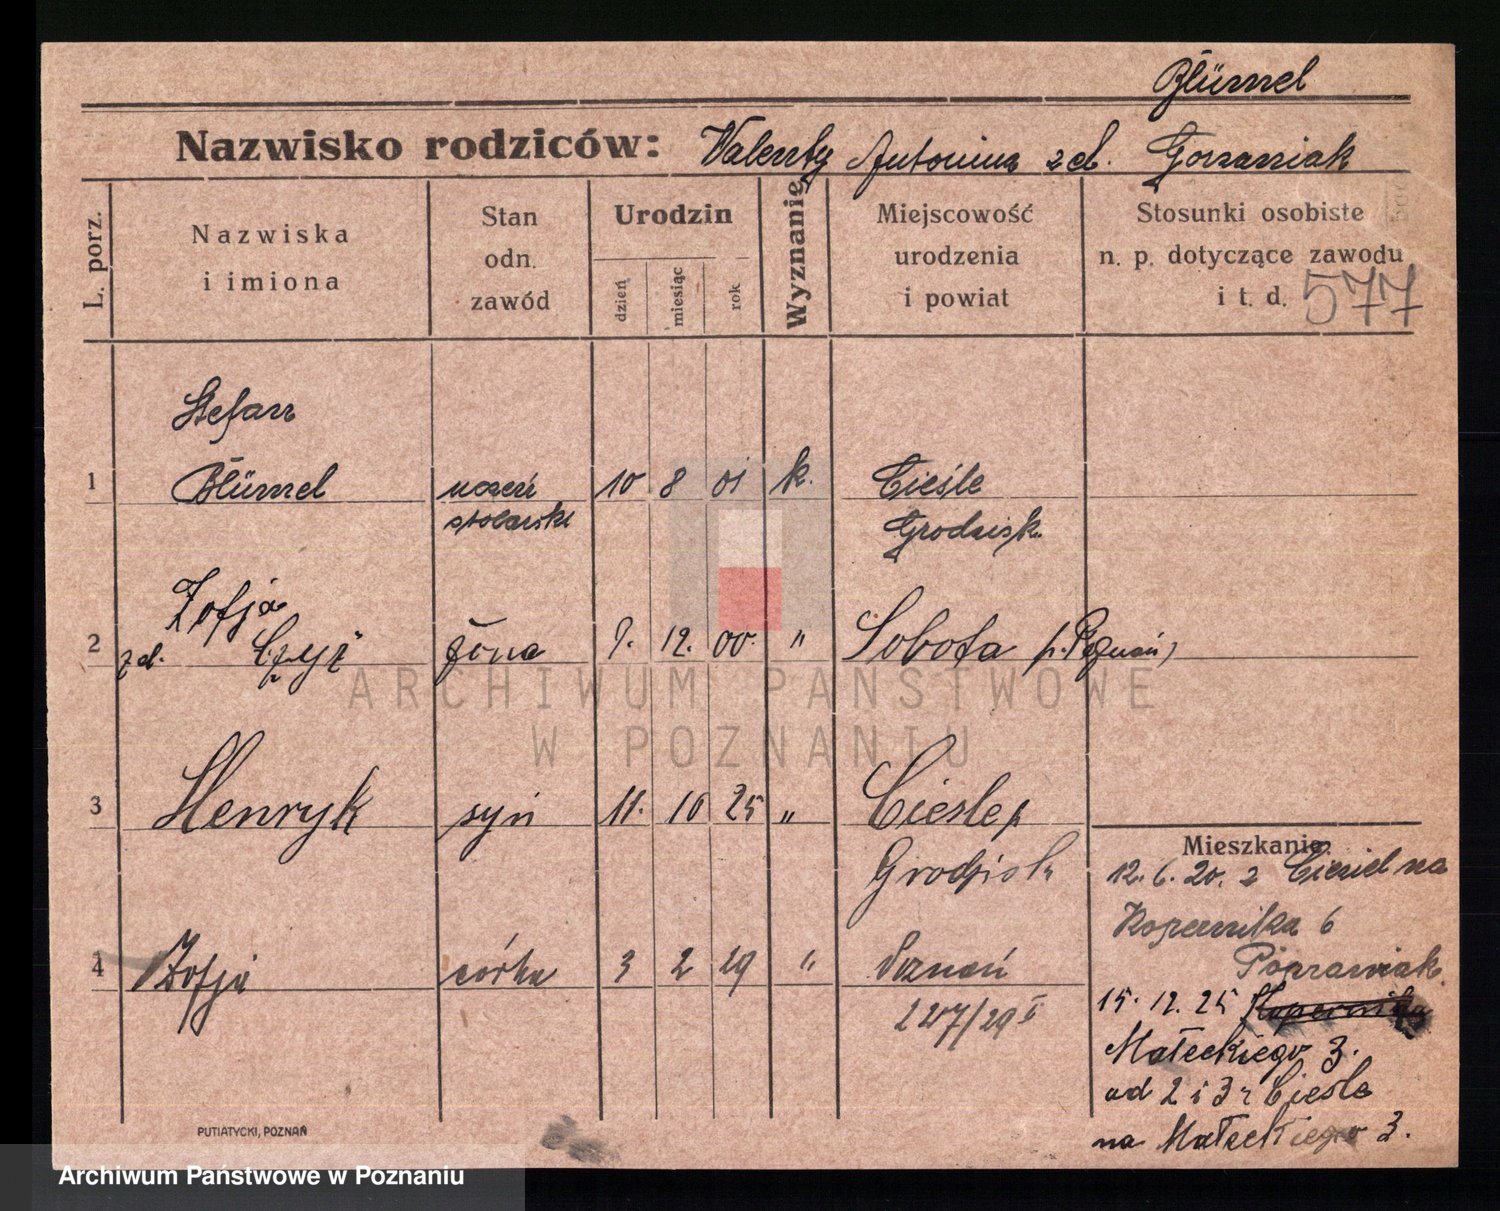 Blümel
Nazwisko rodziców: Walenty Antonina zd. Gorzaniak
L. porz.
Nazwiska
i imiona
Stan
odn.
zawód
Urodzin
dzień
miesiąc
rok
Wyznanie
Miejscowość
urodzenia
i powiat
Stosunki osobiste
n. p. dotyczące zawodu
i t. d. 577
Stefan
1 Blümel uczeń 10 8 01 k. Cieśle
stolarski Grodzisk.
Zofja
2 zd. Czyż żona 9. 12. 00. " Sobota p. Poznań)
ARCHIWUM PAŃSTWOWE
W POZNANIU
3 Henryk syn 11. 10 25 " Ciesle p
Grodzisk
Mieszkanie:
12. 6. 20. z na
Kopernika 6
4 Zofja córka 3 2 29 " Poznań
247/29 I
15. 12. 25 Kopernika
Małeckiego 3.
od 2 i 3 z Cieśle
na Małeckiego 3.
PUTIATYCKI, POZNAŃ
Archiwum Państwowe w Poznaniu